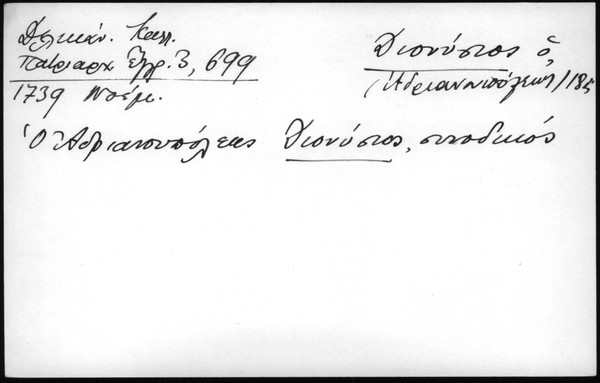 Δελικάν. Καλ.
Πατριαρχ Ἐγγρ. 3, 699
1739 Νοέμ.
Διονύσιος ὁ
(Ἀδριανουπόλεως) 185
Ὁ Ἀδριανουπόλεως Διονύσιος, συνοδικός